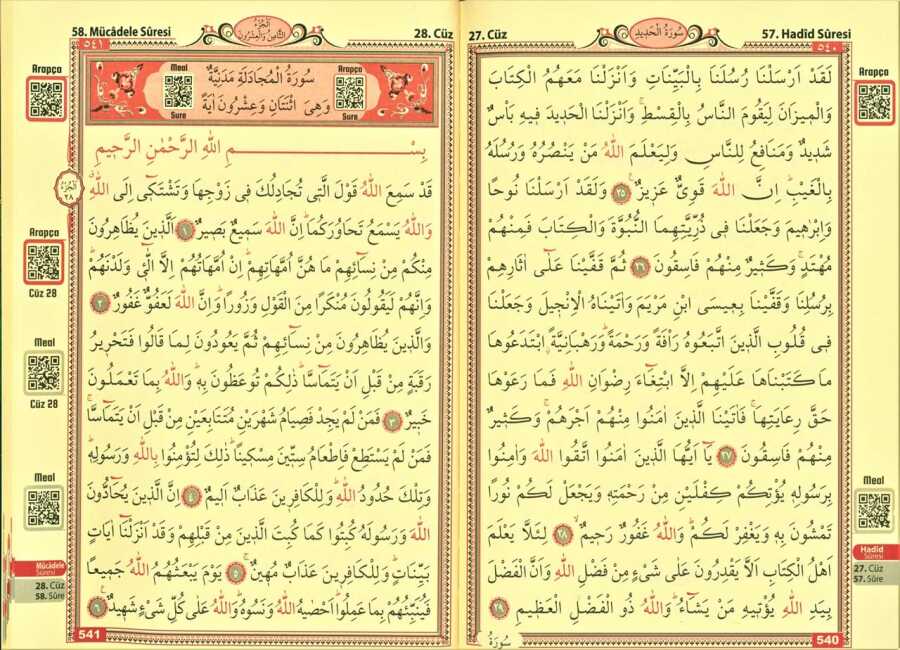 27. Cüz
سُورَةُ الْحَدِيدِ
57. Hadîd Sûresi
٥٤٠
لَقَدْ اَرْسَلْنَا رُسُلَنَا بِالْبَيِّنَاتِ وَاَنْزَلْنَا مَعَهُمُ الْكِتَابَ
وَالْمِيزَانَ لِيَقُومَ النَّاسُ بِالْقِسْطِۚ وَاَنْزَلْنَا الْحَدِيدَ فِيهِ بَأْسٌ
شَدِيدٌ وَمَنَافِعُ لِلنَّاسِ وَلِيَعْلَمَ اللّٰهُ مَنْ يَنْصُرُهُ وَرُسُلَهُ
بِالْغَيْبِۜ اِنَّ اللّٰهَ قَوِيٌّ عَزِيزٌ ﴿٢٥﴾ وَلَقَدْ اَرْسَلْنَا نُوحًا
وَاِبْرٰهِيمَ وَجَعَلْنَا فِي ذُرِّيَّتِهِمَا النُّبُوَّةَ وَالْكِتَابَ فَمِنْهُمْ
مُهْتَدٍۚ وَكَثِيرٌ مِنْهُمْ فَاسِقُونَ ﴿٢٦﴾ ثُمَّ قَفَّيْنَا عَلٰٓى اٰثَارِهِمْ
بِرُسُلِنَا وَقَفَّيْنَا بِعِيسَى ابْنِ مَرْيَمَ وَاٰتَيْنَاهُ الْاِنْجِيلَ وَجَعَلْنَا
فِي قُلُوبِ الَّذِينَ اتَّبَعُوهُ رَأْفَةً وَرَحْمَةًۜ وَرَهْبَانِيَّةًۨ ابْتَدَعُوهَا
مَا كَتَبْنَاهَا عَلَيْهِمْ اِلَّا ابْتِغَٓاءَ رِضْوَانِ اللّٰهِ فَمَا رَعَوْهَا
حَقَّ رِعَايَتِهَاۚ فَاٰتَيْنَا الَّذِينَ اٰمَنُوا مِنْهُمْ اَجْرَهُمْۚ وَكَثِيرٌ
مِنْهُمْ فَاسِقُونَ ﴿٢٧﴾ يَٓا اَيُّهَا الَّذِينَ اٰمَنُوا اتَّقُوا اللّٰهَ وَاٰمِنُوا
بِرَسُولِهِ يُؤْتِكُمْ كِفْلَيْنِ مِنْ رَحْمَتِهِ وَيَجْعَلْ لَكُمْ نُورًا
تَمْشُونَ بِهِ وَيَغْفِرْ لَكُمْۜ وَاللّٰهُ غَفُورٌ رَحِيمٌۙ ﴿٢٨﴾ لِئَلَّا يَعْلَمَ
اَهْلُ الْكِتَابِ اَلَّا يَقْدِرُونَ عَلٰى شَيْءٍ مِنْ فَضْلِ اللّٰهِ وَاَنَّ الْفَضْلَ
بِيَدِ اللّٰهِ يُؤْتِيهِ مَنْ يَشَٓاءُۜ وَاللّٰهُ ذُو الْفَضْلِ الْعَظِيمِ ﴿٢٩﴾
سُورَةُ
540
Arapça
Meal
Hadîd
Sûresi
27. Cüz
57. Sûre
58. Mücâdele Sûresi
اَلْجُزْءُ
الثَّامِنُ وَالْعِشْرُونَ
28. Cüz
٥٤١
Meal
Sure
سُورَةُ الْمُجَادَلَةِ مَدَنِيَّةٌ
وَهِيَ اثْنَتَانِ وَعِشْرُونَ اٰيَةً
Arapça
Sure
بِسْمِ اللّٰهِ الرَّحْمٰنِ الرَّحِيمِ
قَدْ سَمِعَ اللّٰهُ قَوْلَ الَّتِي تُجَادِلُكَ فِي زَوْجِهَا وَتَشْتَكِٓي اِلَى اللّٰهِۗ
وَاللّٰهُ يَسْمَعُ تَحَاوُرَكُمَاۜ اِنَّ اللّٰهَ سَمِيعٌ بَصِيرٌ ﴿١﴾ اَلَّذِينَ يُظَاهِرُونَ
مِنْكُمْ مِنْ نِسَٓائِهِمْ مَا هُنَّ اُمَّهَاتِهِمْۜ اِنْ اُمَّهَاتُهُمْ اِلَّا الّٰٓـِٔي وَلَدْنَهُمْۜ
وَاِنَّهُمْ لَيَقُولُونَ مُنْكَرًا مِنَ الْقَوْلِ وَزُورًاۜ وَاِنَّ اللّٰهَ لَعَفُوٌّ غَفُورٌ ﴿٢﴾
وَالَّذِينَ يُظَاهِرُونَ مِنْ نِسَٓائِهِمْ ثُمَّ يَعُودُونَ لِمَا قَالُوا فَتَحْرِيرُ
رَقَبَةٍ مِنْ قَبْلِ اَنْ يَتَمَٓاسَّاۜ ذٰلِكُمْ تُوعَظُونَ بِهِۜ وَاللّٰهُ بِمَا تَعْمَلُونَ
خَبِيرٌ ﴿٣﴾ فَمَنْ لَمْ يَجِدْ فَصِيَامُ شَهْرَيْنِ مُتَتَابِعَيْنِ مِنْ قَبْلِ اَنْ يَتَمَٓاسَّاۚ
فَمَنْ لَمْ يَسْتَطِعْ فَاِطْعَامُ سِتِّينَ مِسْكِينًاۜ ذٰلِكَ لِتُؤْمِنُوا بِاللّٰهِ وَرَسُولِهِۜ
وَتِلْكَ حُدُودُ اللّٰهِۜ وَلِلْكَافِرِينَ عَذَابٌ اَلِيمٌ ﴿٤﴾ اِنَّ الَّذِينَ يُحَٓادُّونَ
اللّٰهَ وَرَسُولَهُ كُبِتُوا كَمَا كُبِتَ الَّذِينَ مِنْ قَبْلِهِمْ وَقَدْ اَنْزَلْنَٓا اٰيَاتٍ
بَيِّنَاتٍۜ وَلِلْكَافِرِينَ عَذَابٌ مُهِينٌۚ ﴿٥﴾ يَوْمَ يَبْعَثُهُمُ اللّٰهُ جَمِيعًا
فَيُنَبِّئُهُمْ بِمَا عَمِلُواۜ اَحْصٰيهُ اللّٰهُ وَنَسُوهُۜ وَاللّٰهُ عَلٰى كُلِّ شَيْءٍ شَهِيدٌ ﴿٦﴾
541
Arapça
اَلْجُزْءُ
٢٨
Arapça
Cüz 28
Meal
Cüz 28
Meal
Mücâdele
Sûresi
28. Cüz
58. Sûre